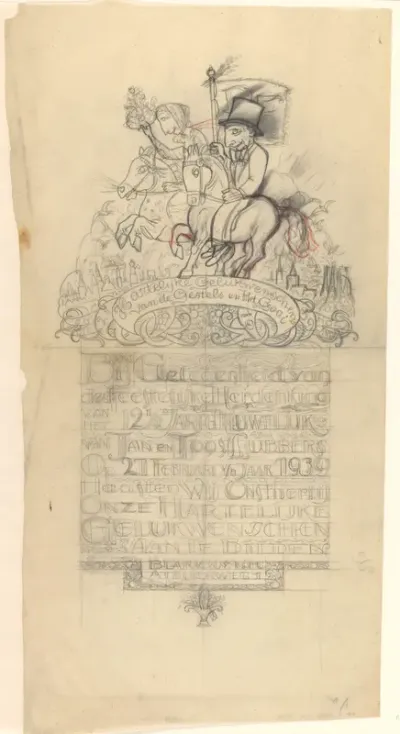 Hartelijke Gelukwenschen
van de Gestels uit 't Gooi
Bij Gelegenheid van
de Feestelijke Herdenking
VAN HET 12½ JARIG HUWELIJK
VAN JAN en TOOS LUBBERS
Op 21 FEBRUARI v/h JAAR 1934
Haasten Wij Ons Hierbij
ONZE HARTELIJKE
GELUKWENSCHEN
AAN TE BIEDEN
BLARICUM